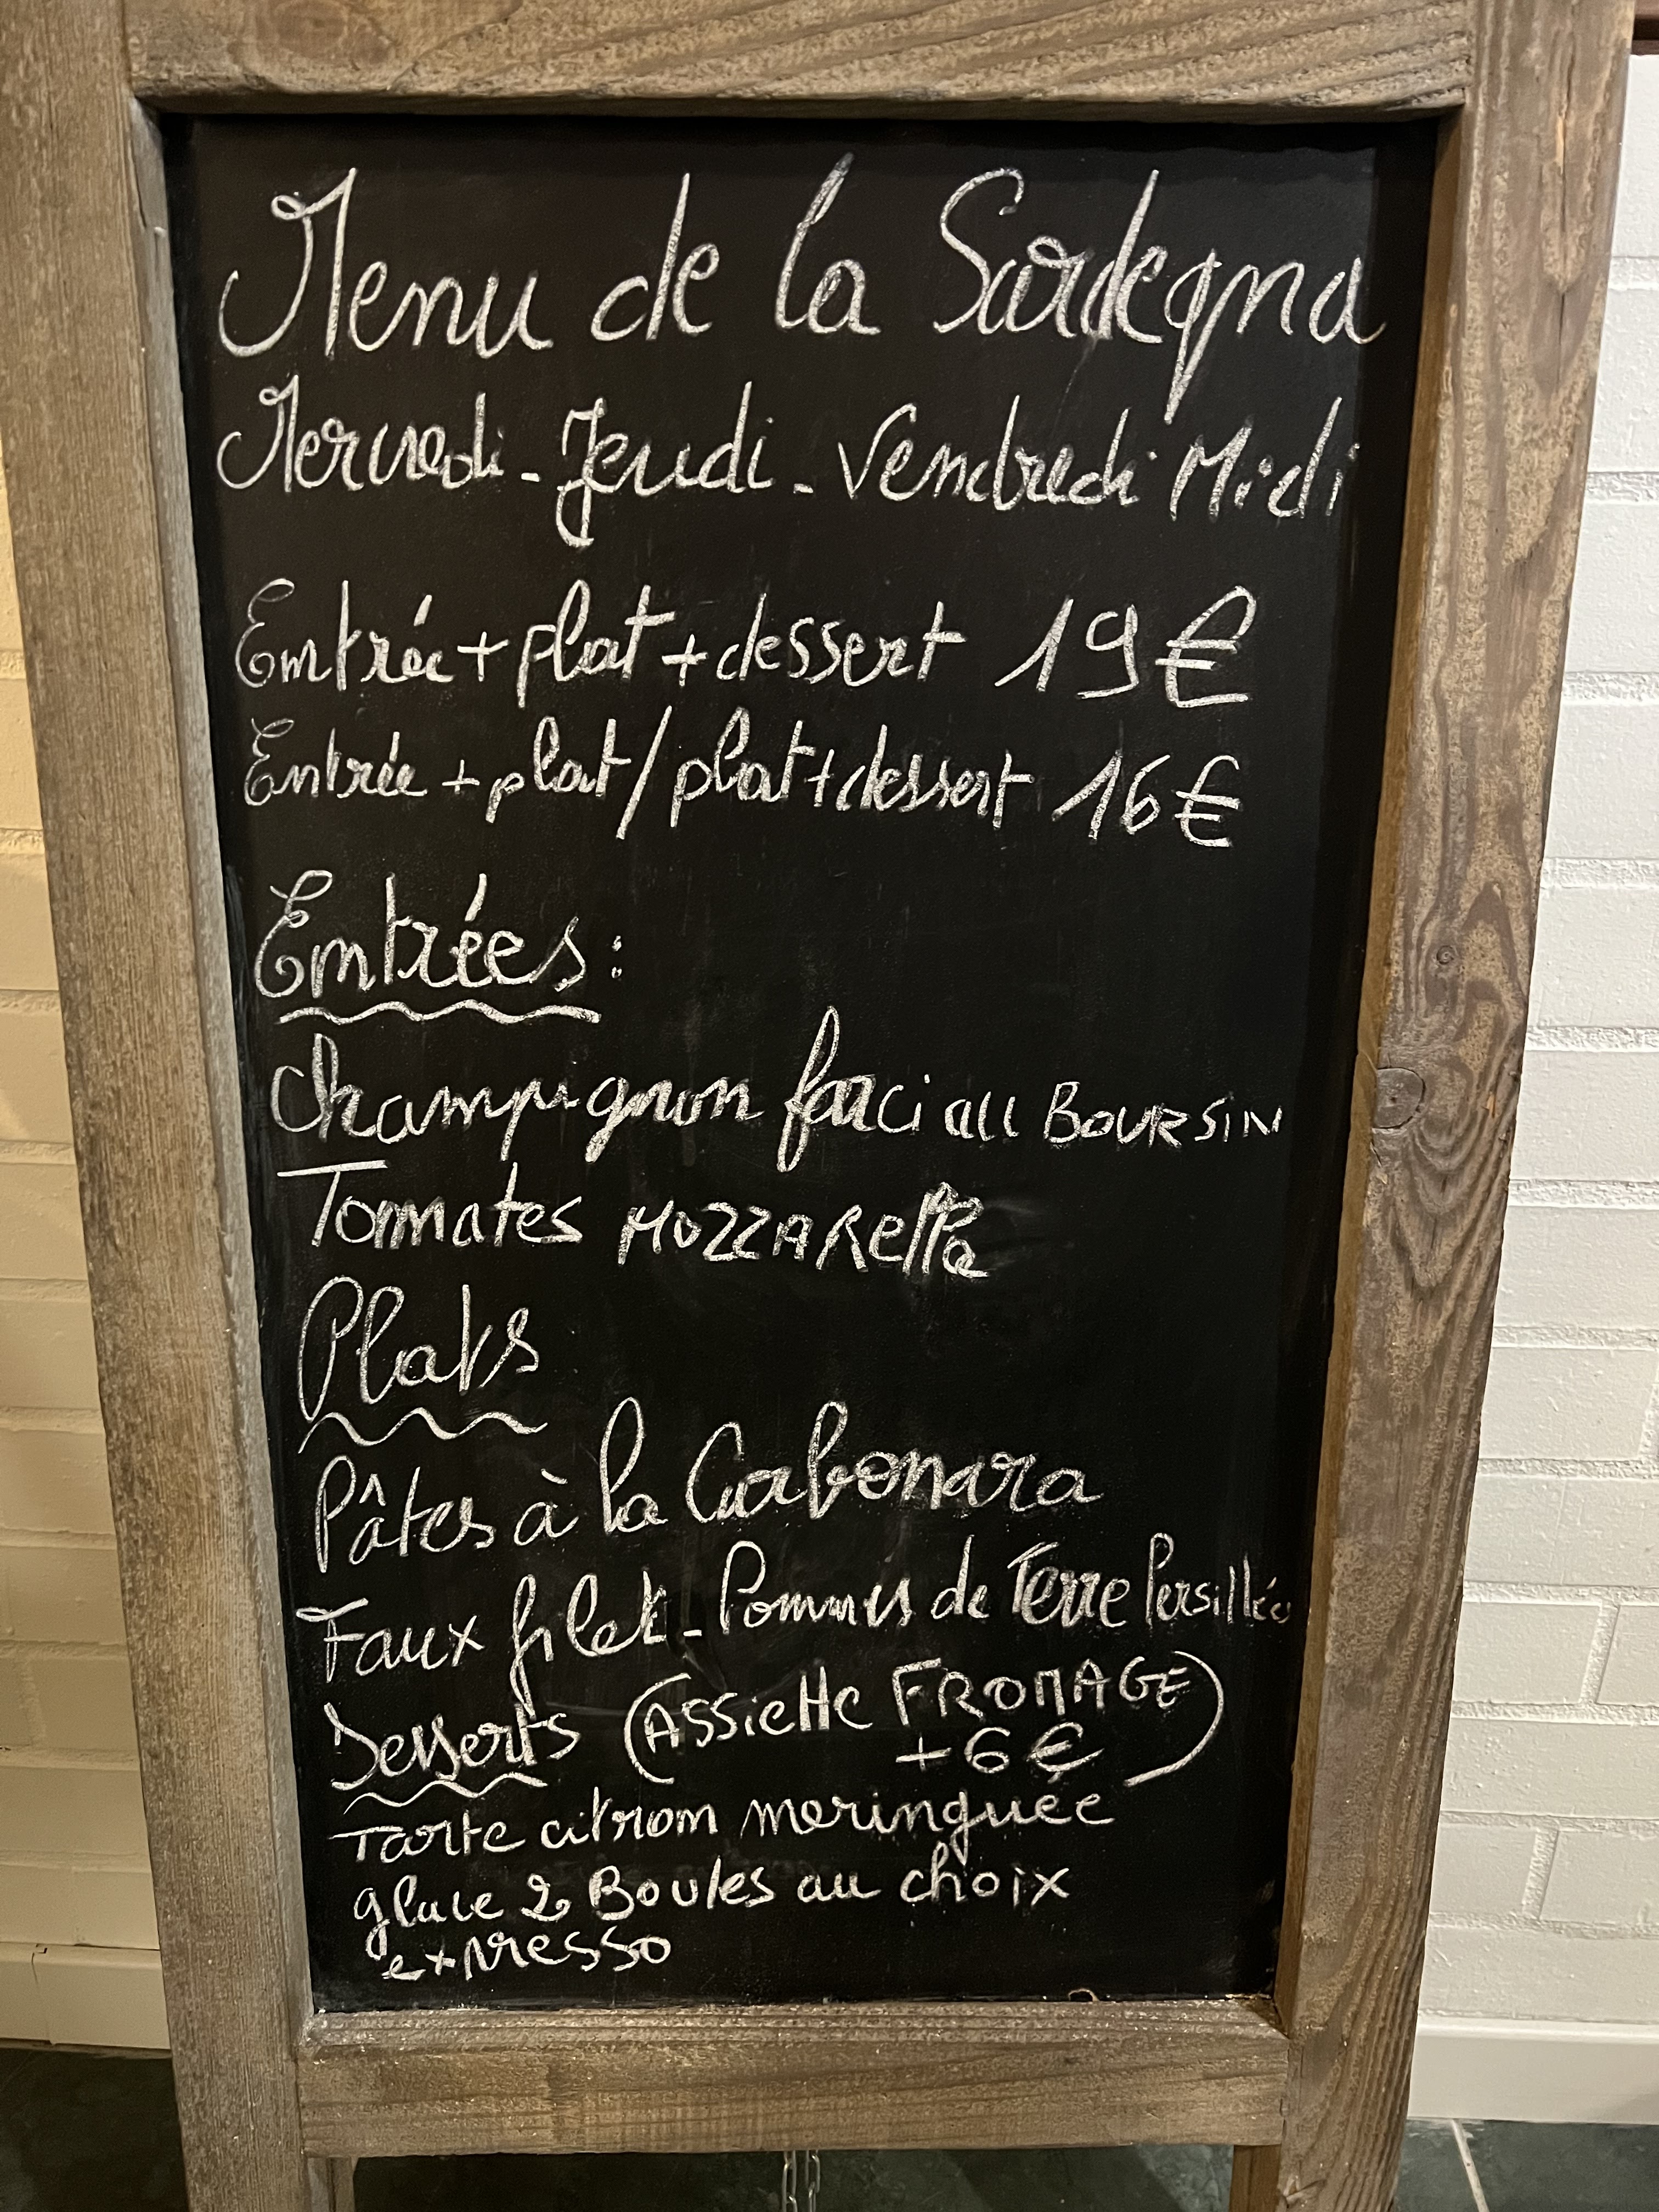 Menu de la Sardegna
Mercredi - Jeudi - Vendredi Midi
Entrée + plat + dessert 19€
Entrée + plat / plat + dessert 16€
Entrées :
Champignon farci au BOURSIN
Tomates MOZZARella
Plats
Pâtes à la Carbonara
Faux filet - Pommes de Terre Persillées
Desserts (ASSieTTe FROMAGE
+6€)
Tarte citron meringuée
glace 2 Boules au choix
expresso